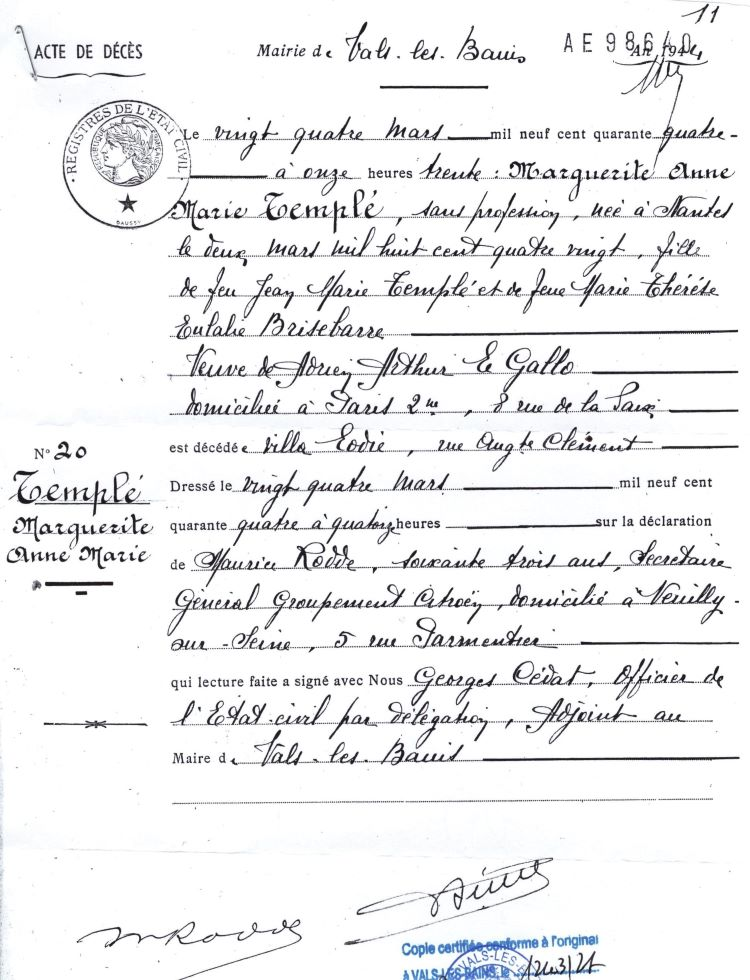 11
ACTE DE DÉCÈS
Mairie de Vals-les-Bains
AE 98640
An 1944
REGISTRES DE L'ETAT CIVIL
REPUBLIQUE FRANÇAISE
DAUSSY
Le vingt quatre Mars mil neuf cent quarante quatre-
à onze heures trente : Marguerite Anne
Marie Templé, sans profession, née à Nantes
le deux mars mil huit cent quatre vingt, fille
de feu Jean Marie Templé et de feue Marie Thérèse
Eulalie Brisebarre
Veuve de Adrien Arthur Le Gallo
domiciliée à Paris 2me, 8 rue de la Paix
est décédée villa Eodie, rue Augte Clément
N° 20
Templé
Marguerite
Anne Marie
Dressé le vingt quatre Mars mil neuf cent
quarante quatre à quatorze heures sur la déclaration
de Maurice Rodde, soixante trois ans, Secrétaire
Général Groupement Citroën, domicilié à Neuilly-
sur-Seine, 5 rue Parmentier
qui lecture faite a signé avec Nous Georges Cédat, Officier de
l'Etat-civil par délégation, Adjoint au
Maire de Vals-les-Bains
MRodde
Copie certifiée conforme à l'original
à VALS-LES-BAINS, le 24/3/21
VALS-LES-